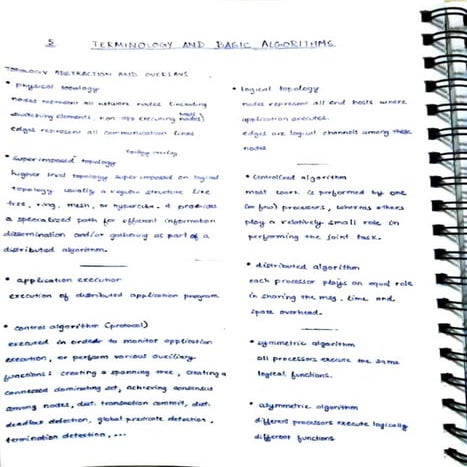 5 TERMINOLOGY AND BASIC ALGORITHMS
TOPOLOGY ABSTRACTION AND OVERLAYS
• physical topology
nodes represent all network nodes (including
switching elements, non app executing nodes)
edges represent all communication links
topology overlay
• superimposed topology
higher level topology superimposed on logical
topology usually a regular structure like
tree, ring, mesh, or hypercube. it provides
a specialized path for efficient information
dissemination and/or gathering as part of a
distributed algorithm.
• application execution
execution of distributed application program
• control algorithm (protocol)
executed in order to monitor application
execution, or perform various auxiliary
functions: creating a spanning tree, creating a
connected dominating set, achieving consensus
among nodes, dist. transaction commit, dist.
deadlock detection, global predicate detection,
termination detection, ...
• logical topology
nodes represent all end hosts where
application executes.
edges are logical channels among these
nodes
• centralized algorithm
most work is performed by one
(or few) processors, whereas others
play a relatively small role in
performing the joint task.
• distributed algorithm
each processor plays an equal role
in sharing the msg, time and
space overhead.
• symmetric algorithm
all processors execute the same
logical functions.
• asymmetric algorithm
different processors execute logically
different functions